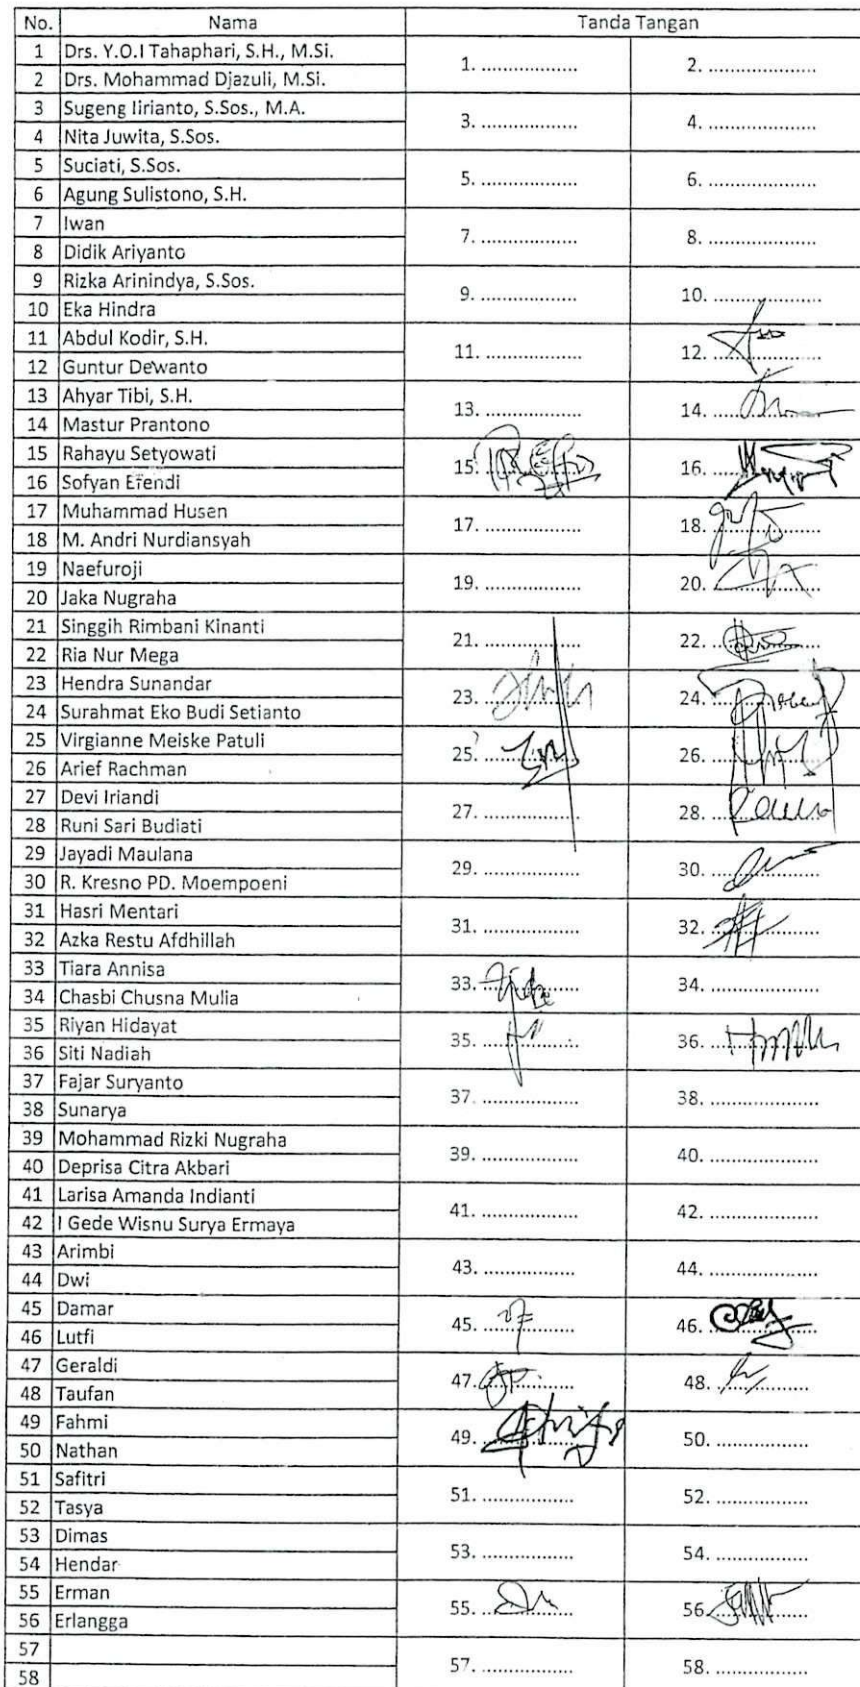 No. Nama Tanda Tangan
1 Drs. Y.O.I Tahaphari, S.H., M.Si.
1. .................. 2. ....................
2 Drs. Mohammad Djazuli, M.Si.
3 Sugeng Iirianto, S.Sos., M.A.
3. .................. 4. ....................
4 Nita Juwita, S.Sos.
5 Suciati, S.Sos.
5. .................. 6. ....................
6 Agung Sulistono, S.H.
7 Iwan
7. .................. 8. ....................
8 Didik Ariyanto
9 Rizka Arinindya, S.Sos.
9. .................. 10. ....................
10 Eka Hindra
11 Abdul Kodir, S.H.
11. .................. 12. ....................
12 Guntur Dewanto
13 Ahyar Tibi, S.H.
13. .................. 14. ....................
14 Mastur Prantono
15 Rahayu Setyowati
15. .................. 16. ....................
16 Sofyan Efendi
17 Muhammad Husen
17. .................. 18. ....................
18 M. Andri Nurdiansyah
19 Naefuroji
19. .................. 20. ....................
20 Jaka Nugraha
21 Singgih Rimbani Kinanti
21. .................. 22. ....................
22 Ria Nur Mega
23 Hendra Sunandar
23. .................. 24. ....................
24 Surahmat Eko Budi Setianto
25 Virgianne Meiske Patuli
25. .................. 26. ....................
26 Arief Rachman
27 Devi Iriandi
27. .................. 28. ....................
28 Runi Sari Budiati
29 Jayadi Maulana
29. .................. 30. ....................
30 R. Kresno PD. Moempoeni
31 Hasri Mentari
31. .................. 32. ....................
32 Azka Restu Afdhillah
33 Tiara Annisa
33. .................. 34. ....................
34 Chasbi Chusna Mulia
35 Riyan Hidayat
35. .................. 36. ....................
36 Siti Nadiah
37 Fajar Suryanto
37. .................. 38. ....................
38 Sunarya
39 Mohammad Rizki Nugraha
39. .................. 40. ....................
40 Deprisa Citra Akbari
41 Larisa Amanda Indianti
41. .................. 42. ....................
42 I Gede Wisnu Surya Ermaya
43 Arimbi
43. .................. 44. ....................
44 Dwi
45 Damar
45. .................. 46. ....................
46 Lutfi
47 Geraldi
47. .................. 48. ....................
48 Taufan
49 Fahmi
49. .................. 50. ..................
50 Nathan
51 Safitri
51. .................. 52. ..................
52 Tasya
53 Dimas
53. .................. 54. ..................
54 Hendar
55 Erman
55. .................. 56. ..................
56 Erlangga
57
57. .................. 58. ..................
58